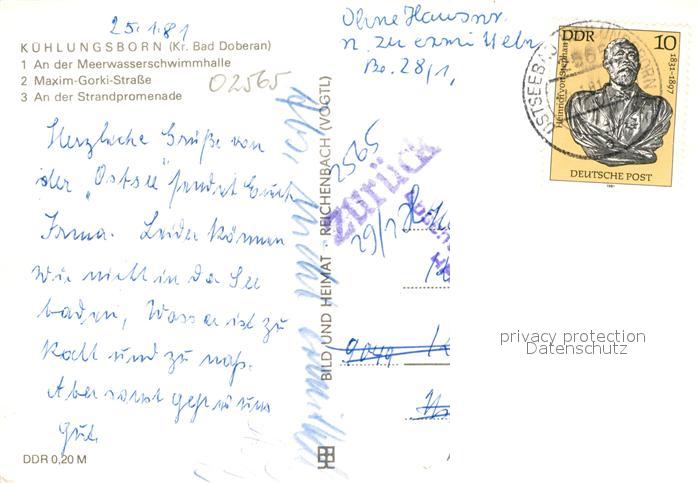 25.1.81
KÜHLUNGSBORN (Kr. Bad Doberan)
1 An der Meerwasserschwimmhalle
2 Maxim-Gorki-Straße
3 An der Strandpromenade
02565
Herzliche Grüße von
der „Ostsee" sendet Euch
Irma. Leider können
wir nicht in der See
baden, Wasser ist zu
kalt und zu naß.
Aber sonst geht es uns
gut.
DDR 0,20 M
BILD UND HEIMAT · REICHENBACH (VOGTL)
Ohne Hausnr.
n. zu ermitteln
28/1,
2565
Zurück
29/1
9044
DDR 10
Heinrich von Stephan
1831-1897
DEUTSCHE POST
1981
OSTSEEBAD KÜHLUNGSBORN
privacy protection
Datenschutz